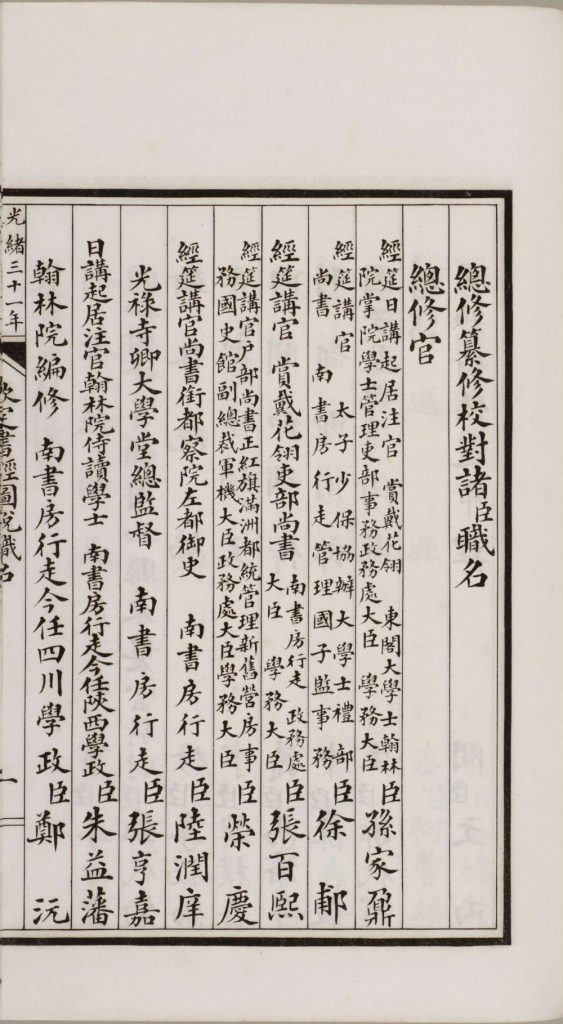 總修纂修校對諸臣職名
總修官
經筵日講起居注官 賞戴花翎 東閣大學士翰林
院掌院學士管理吏部事務政務處大臣 學務大臣
臣孫家鼐
經筵講官 太子少保協辦大學士禮部
尚書 南書房行走管理國子監事務
臣徐郙
經筵講官 賞戴花翎吏部尚書
南書房行走 政務處
大臣 學務大臣
臣張百熙
經筵講官戶部尚書正紅旗滿洲都統管理新舊營房事
務國史館副總裁軍機大臣政務處大臣學務大臣
臣榮慶
經筵講官尚書銜都察院左都御史 南書房行走臣陸潤庠
光祿寺卿大學堂總監督 南書房行走臣張亨嘉
日講起居注官翰林院侍讀學士 南書房行走今任陝西學政臣朱益藩
翰林院編修 南書房行走今任四川學政臣鄭沅
光緒三十一年
書經圖說職名
一